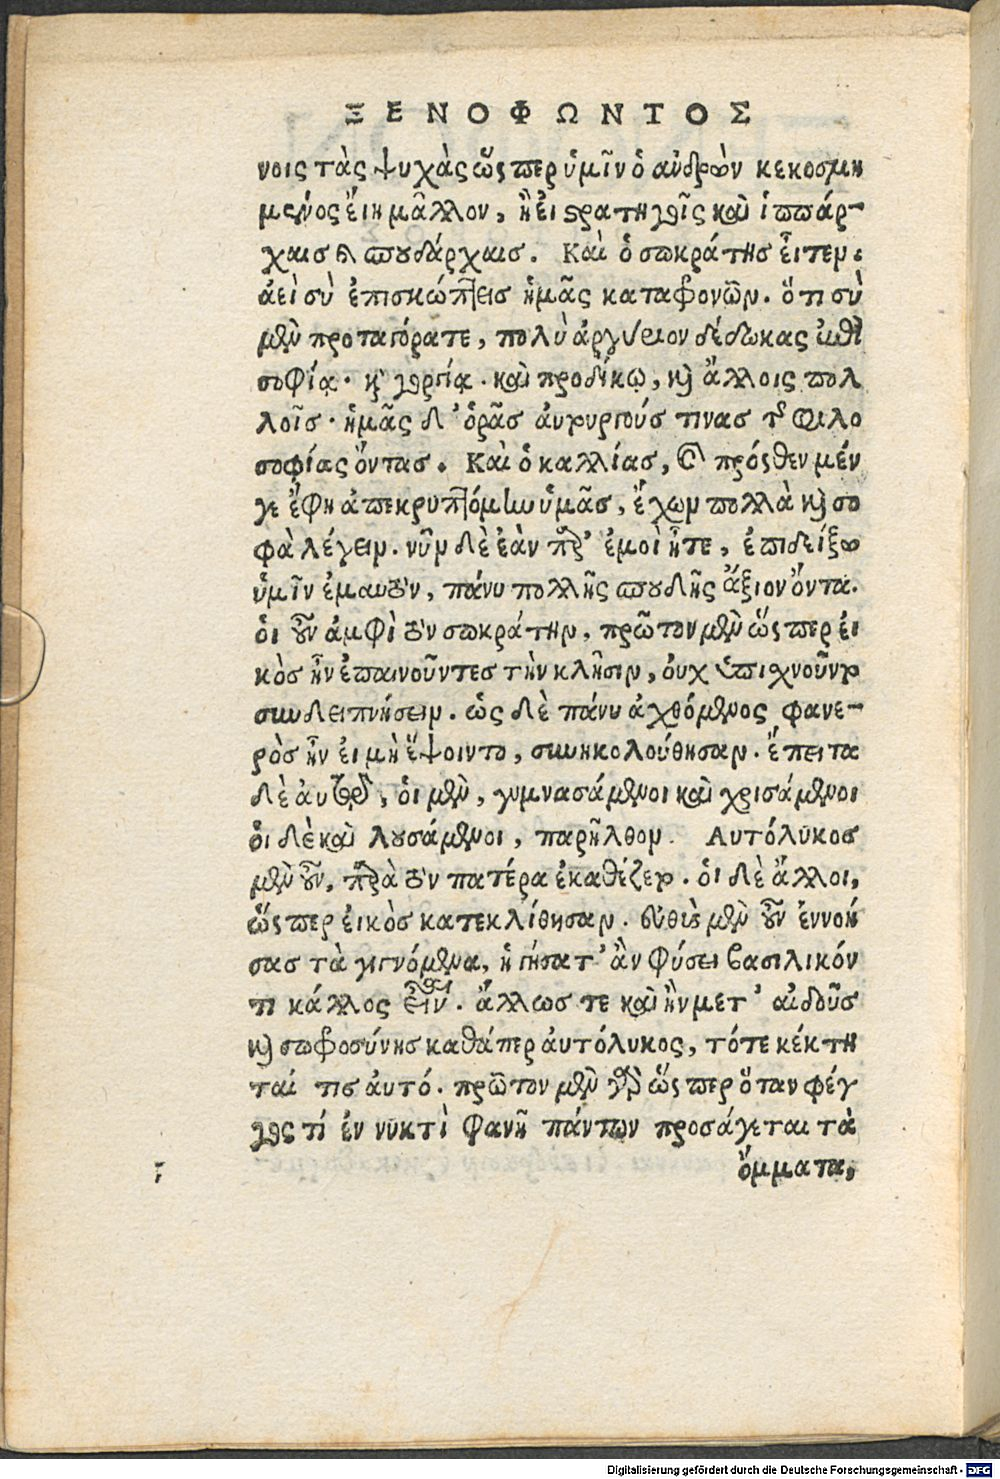 ΞΕΝΟΦΩΝΤΟΣ
νοις τὰς ψυχὰς ὥςπερ ὑμῖν ὁ ἀνδρὼν κεκοσμη
μένος ἔιη μᾶλλον, ἢ ἐι στρατηγοῖς καὶ ἱππάρ-
χαισ ἢ σπουδάρχαισ. Καὶ ὁ σωκράτησ ἶιπεν.
ἀεὶ σὺ ἐπισκώπτεισ ἡμᾶς καταφρονῶν. ὅτι σὺ
μὲν προταγόρατε, πολὺ ἀργύριον δέδωκας ἐπὶ
σοφίᾳ. κὶ γοργίᾳ. καὶ προδίκῳ, καὶ ἄλλοις πολ
λοῖσ. ἡμᾶς δ' ὁρᾶσ ἀυτουργούσ τινασ τῆς φιλο
σοφίας ὄντασ. Καὶ ὁ καλλίας, καὶ πρόςθεν μέν
γε ἔφη ἀπεκρυπτόμην ὑμᾶσ, ἔχων πολλὰ καὶ σο
φὰ λέγειν. νῦν δὲ ἐὰν παρ' ἐμοὶ ἦτε, ἐπιδείξω
ὑμῖν ἐμαυτὸν, πάνυ πολλῆς σπουδῆς ἄξιον ὄντα.
ὁι οὖν ἀμφὶ τὸν σωκράτην, πρῶτον μὲν ὥςπερ ἐι
κὸσ ἦν ἐπαινοῦντεσ τὴν κλῆσιν, ὀυχ ὑπιχνοῦντο
συνδειπνήσειν. ὡς δὲ πάνυ ἀχθόμενος φανε-
ρὸσ ἦν ἐι μὴ ἕψοιντο, συνηκολούθησαν. ἔπειτα
δὲ ἀυτῷ, ὁι μὲν, γυμνασάμενοι καὶ χρισάμενοι
ὁι δὲ καὶ λουσάμενοι, παρῆλθον. Αυτόλυκοσ
μὲν οὖν, παρὰ τὸν πατέρα ἐκαθέζετο. ὁι δὲ ἄλλοι,
ὥςπερ ἐικὸσ κατεκλίθησαν. ἐυθὺσ μὲν οὖν ἐννοή
σασ τὰ γιγνόμενα, ἡγήσατ' ἂν φύσει βασιλικόν
τι κάλλος εἶναι. ἄλλωσ τε καὶ ἢν μετ' αἰδοῦσ
καὶ σωφροσύνησ καθάπερ ἀυτόλυκος, τότε κέκτη
ταί τισ ἀυτό. πρῶτον μὲν γὰρ ὥςπερ ὅταν φέγ
γος τί ἐν νυκτὶ φανῆ πάντων προσάγεται τὰ
ὄμματα,
Digitalisierung gefördert durch die Deutsche Forschungsgemeinschaft - DFG